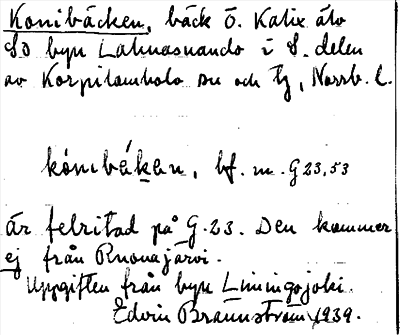 Konibäcken, bäck Ö. Kalix älv
SO byn Lahnasuando i S. delen
av Korpilombolo sn och tg, Norrb. l.
kónibä́ḱen, bf. m. G 23,53
är felritad på G. 23. Den kommer
ej från Ruonajärvi.
Uppgiften från byn Liningojoki.
Edvin Brännström 1939.